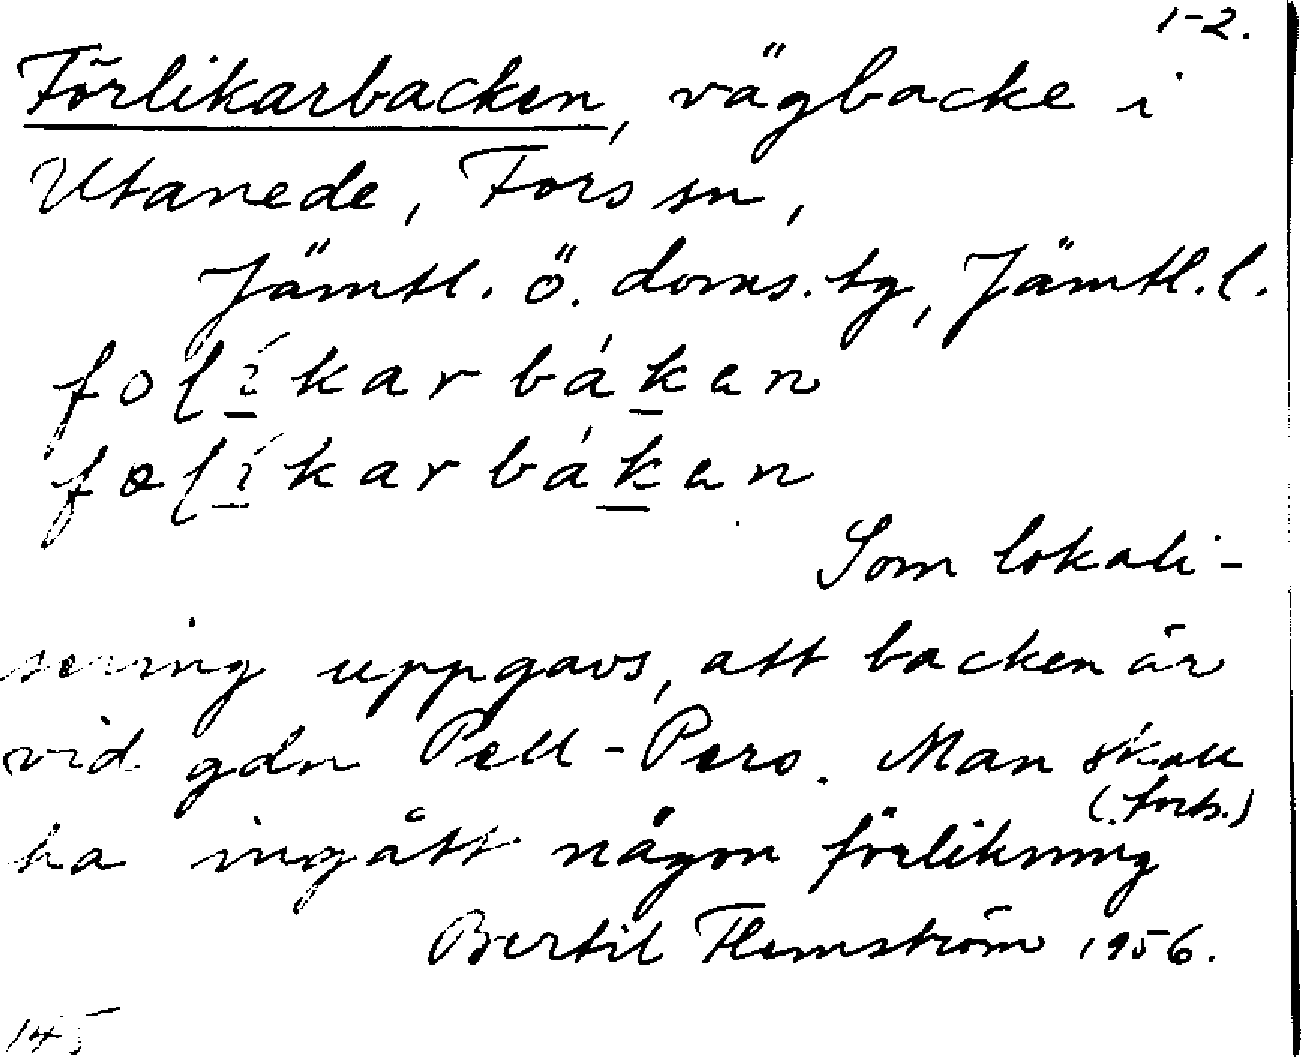 1-2.
Förlikarbacken, vägbacke i
Utanede, Fors sn,
Jämtl. ö. doms.tg, Jämtl.l.
folíkarbákan
fœlíkarbákan
Som lokali-
sering uppgavs, att backen är
vid gdn Pell-Pers. Man skall
(forts.)
ha ingått någon förlikning
Bertil Flemström 1956.
145